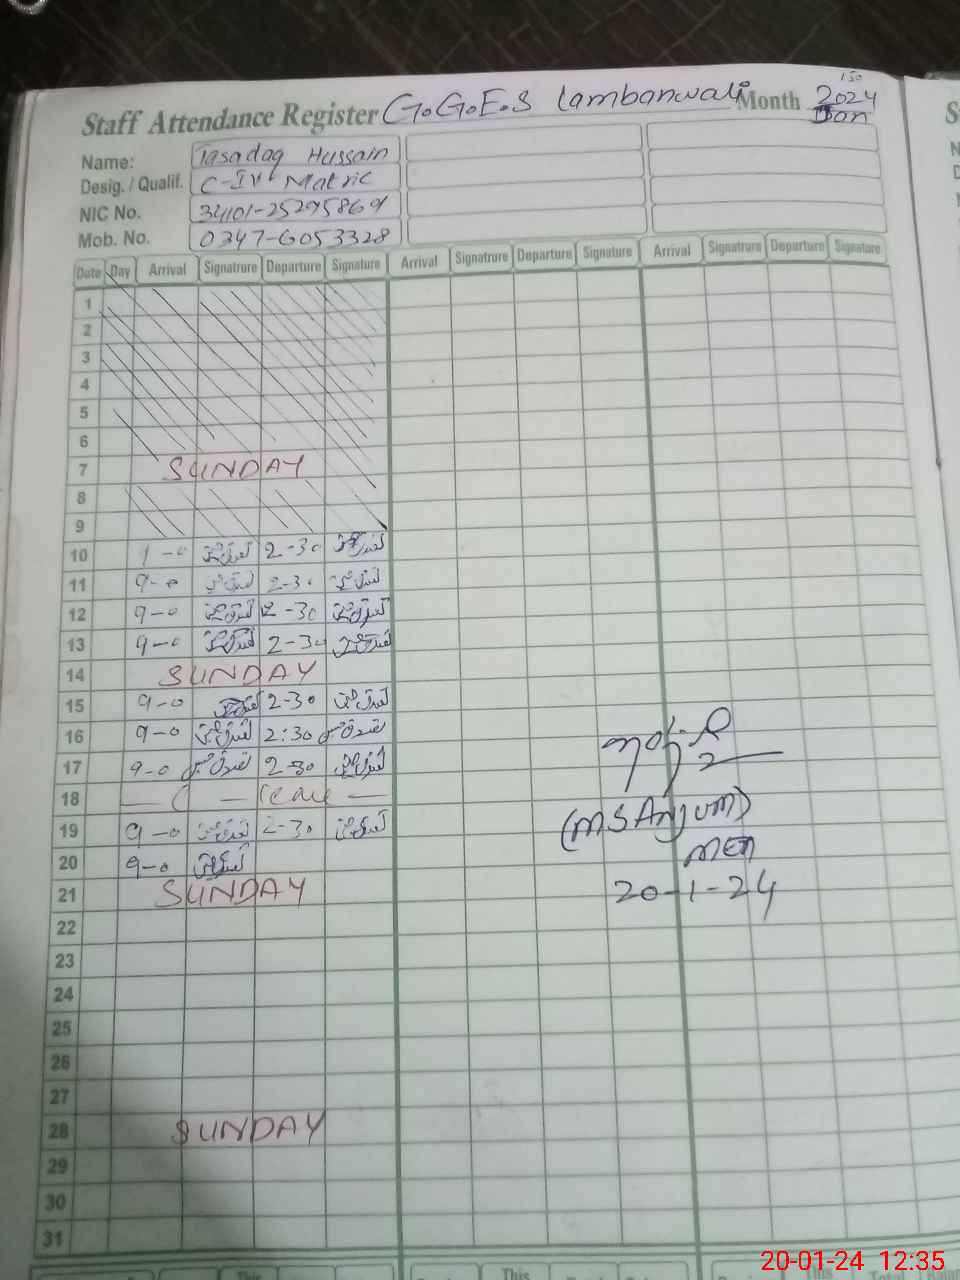 Staff Attendance Register G.G.E.S Lambanwali Month 2024
Jan
Name: Tasadaq Hussain
Desig. / Qualif. C-IV Matric
NIC No. 34101-2529586-9
Mob. No. 0347-6053328
Date Day Arrival Signatrure Departure Signature Arrival Signatrure Departure Signature Arrival Signatrure Departure Signature
1
2
3
4
5
6
7 SUNDAY
8
9
10 9-0 2-30
11 9-0 2-30
12 9-0 2-30
13 9-0 2-30
14 SUNDAY
15 9-0 2-30
16 9-0 2:30
17 9-0 2-30
18 — C — leave —
19 9-0 2-30
20 9-0
21 SUNDAY
22
23
24
25
26
27
28 SUNDAY
29
30
31
(MS Anjum)
MEA
20-1-24
This This
20-01-24 12:35